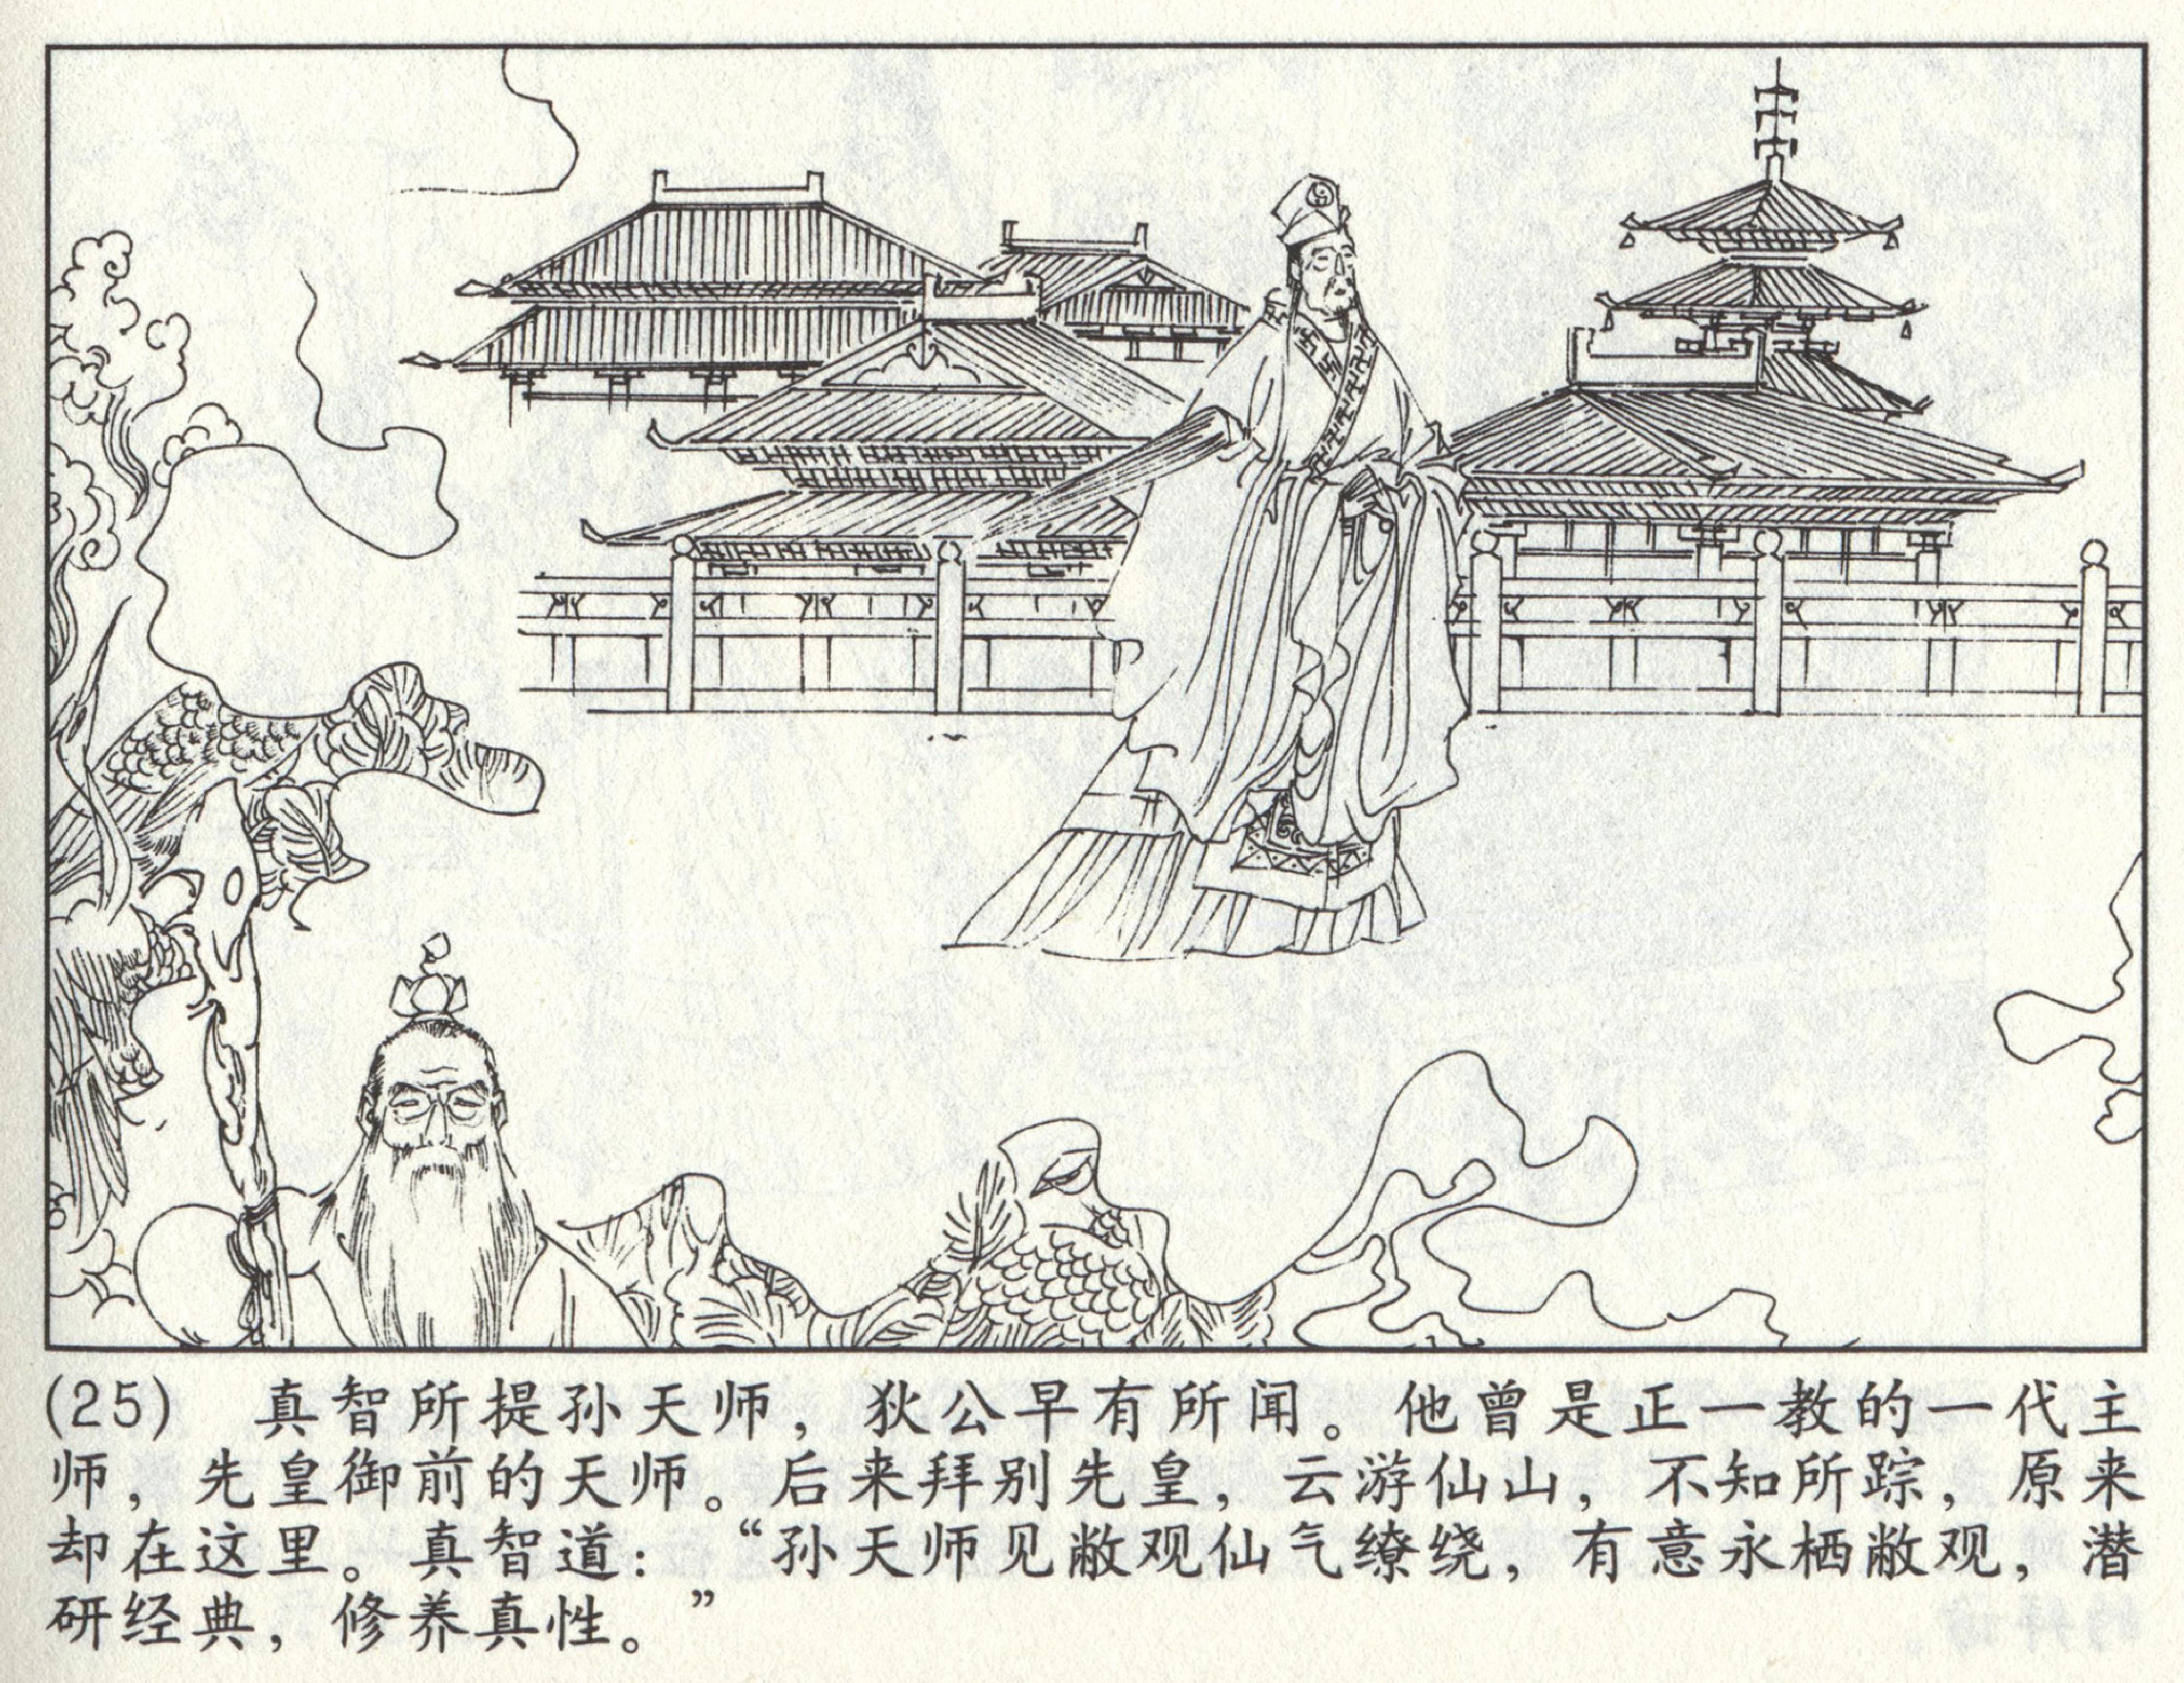 (25) 真智所提孙天师，狄公早有所闻。他曾是正一教的一代主
师，先皇御前的天师。后来拜别先皇，云游仙山，不知所踪，原来
却在这里。真智道：“孙天师见敝观仙气缭绕，有意永栖敝观，潜
研经典，修养真性。”